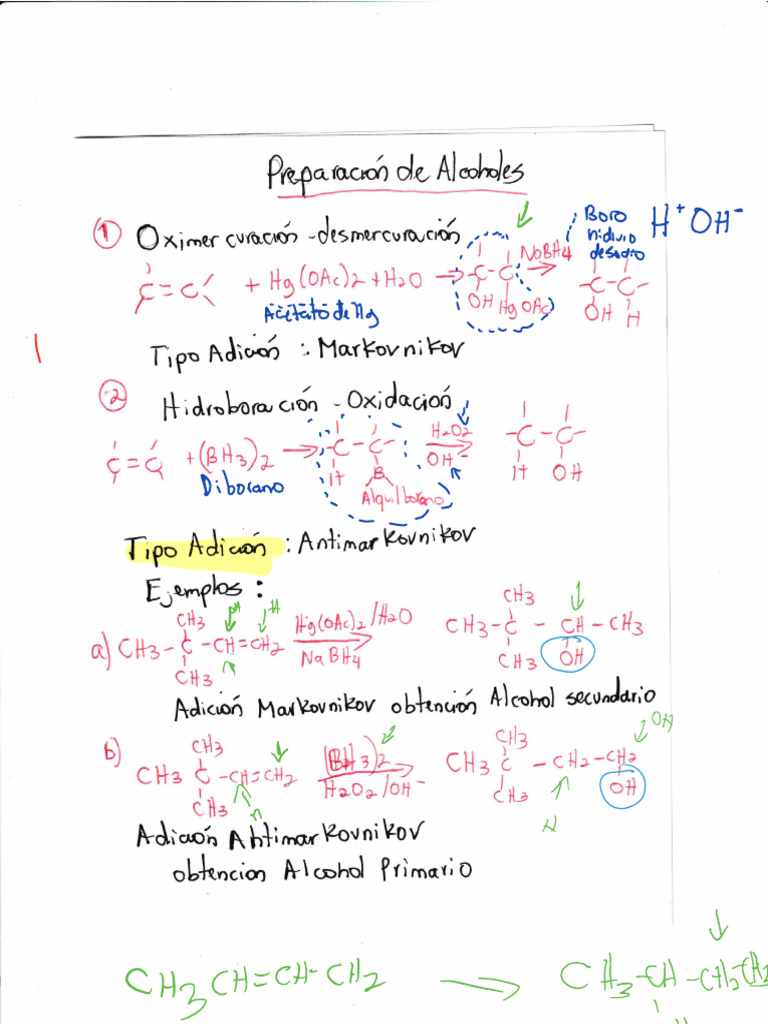 Preparación de Alcoholes
① Oximercuración-desmercuración
Boro
hidruro
de sodio
H+ OH-
C=C + Hg(OAc)2 + H2O → -C-C- NaBH4 → -C-C-
OH HgOAc OH H
Acetato de Hg
Tipo Adición : Markovnikov
② Hidroboración - Oxidación
C=C + (BH3)2 → -C-C- H2O2 OH- → -C-C-
H B H OH
Diborano
Alquilborano
Tipo Adición : Antimarkovnikov
Ejemplos :
CH3 H CH3
a) CH3-C-CH=CH2 Hg(OAc)2/H2O NaBH4 CH3-C-CH-CH3
CH3 CH3 OH
Adición Markovnikov obtención Alcohol secundario
b) CH3 CH3 OH
CH3-C-CH=CH2 (BH3)2 H2O2/OH- CH3-C-CH2-CH2
CH3 H CH3 H OH
Adición Antimarkovnikov
obtencion Alcohol Primario
CH3CH=CH-CH2 → CH3-CH-CH2